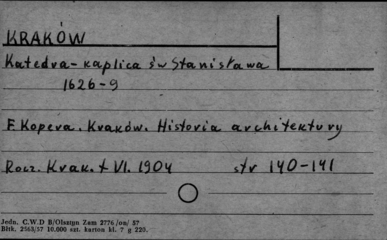 KRAKÓW
Katedra-kaplica św Stanisława
1626-9
F. Kopera. Kraków. Historia architektury
Rocz. Krak. t VI. 1904 str 140-141
Jedn. C.W.D B/Olsztyn Zam 2776 /on/ 57
Bltk. 2563/57 10.000 szt. karton kl. 7 g 220.